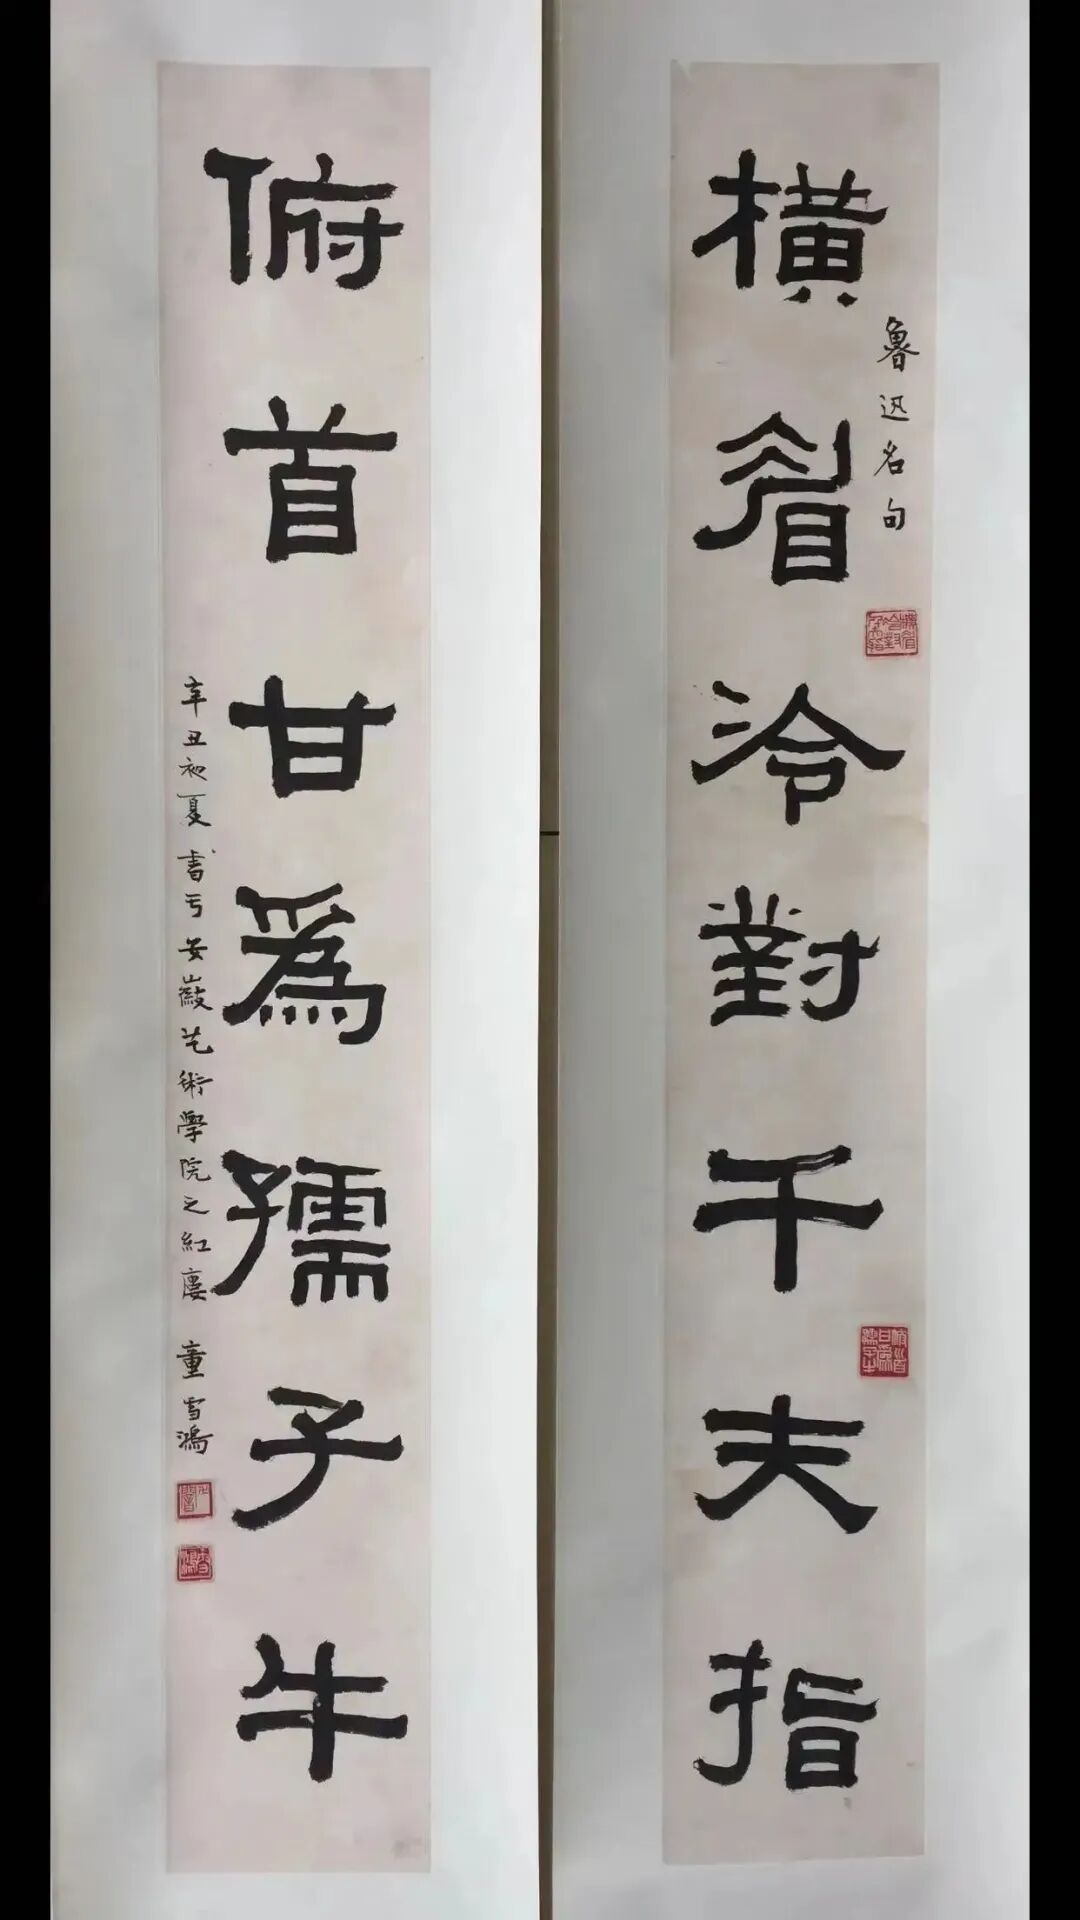 橫眉冷對千夫指
魯迅名句
俯首甘爲孺子牛
辛丑初夏書亏安徽艺術學院之紅廔 童雪鴻